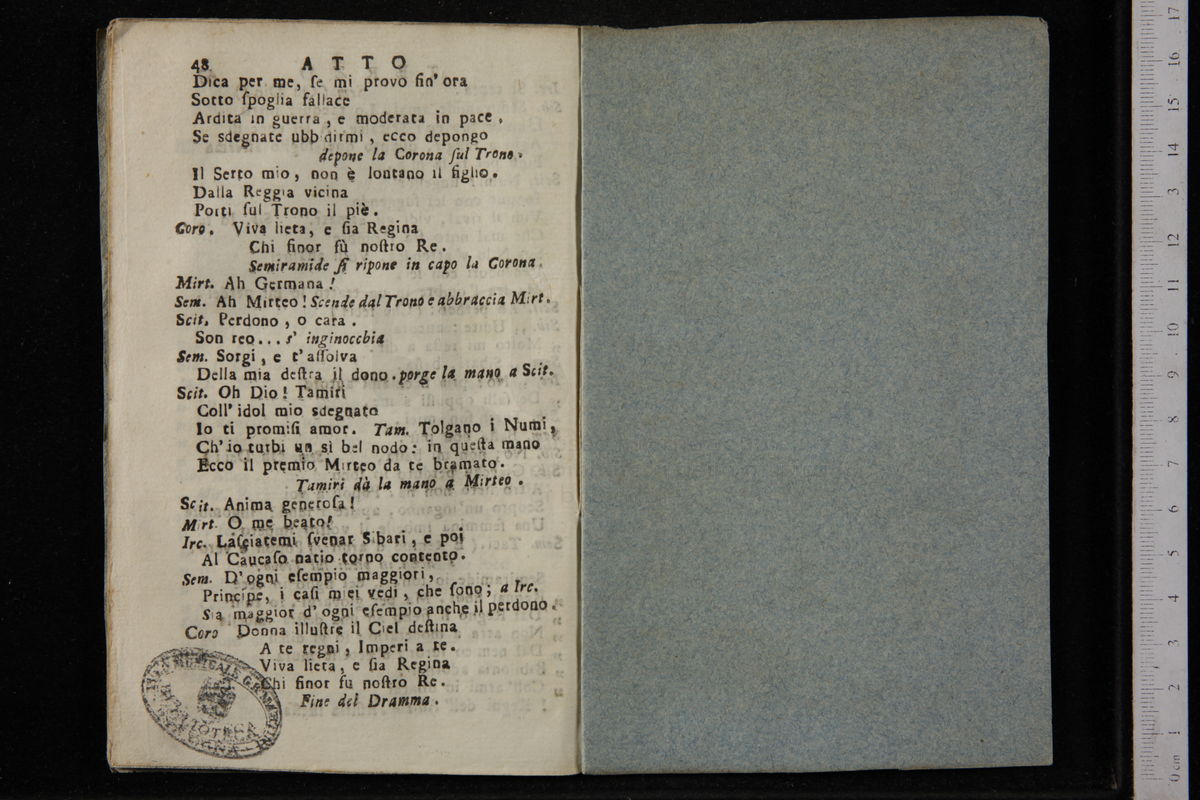 48 ATTO
Dica per me, ſe mi provo fin' ora
Sotto ſpoglia fallace
Ardita in guerra, e moderata in pace,
Se sdegnate ubbidirmi, ecco depongo
depone la Corona ſul Trono.
Il Serto mio, non è lontano il figlio.
Dalla Reggia vicina
Porti ſul Trono il piè.
Coro. Viva lieta, e ſia Regina
Chi finor fù noſtro Re.
Semiramide ſi ripone in capo la Corona.
Mirt. Ah Germana!
Sem. Ah Mirteo! Scende dal Trono e abbraccia Mirt.
Scit. Perdono, o cara.
Son reo... s' inginocchia
Sem. Sorgi, e t'aſſolva
Della mia deſtra il dono. porge la mano a Scit.
Scit. Oh Dio! Tamiri
Coll' idol mio sdegnato
Io ti promiſi amor. Tam. Tolgano i Numi,
Ch' io turbi un sì bel nodo: in queſta mano
Ecco il premio Mirteo da te bramato.
Tamiri dà la mano a Mirteo.
Scit. Anima generoſa!
Mirt. O me beato!
Irc. Laſciatemi ſvenar Sibari, e poi
Al Caucaſo natio torno contento.
Sem. D'ogni eſempio maggiori,
Principe, i caſi miei vedi, che ſono; a Irc.
Sia maggior d' ogni eſempio anche il perdono.
Coro Donna illuſtre il Ciel deſtina
A te regni, Imperi a te.
Viva lieta, e ſia Regina
Chi finor fu noſtro Re.
Fine del Dramma.
BIBLIOTECA
17
16
15
14
13
12
11
10
9
8
7
6
5
4
3
2
1
0 cm